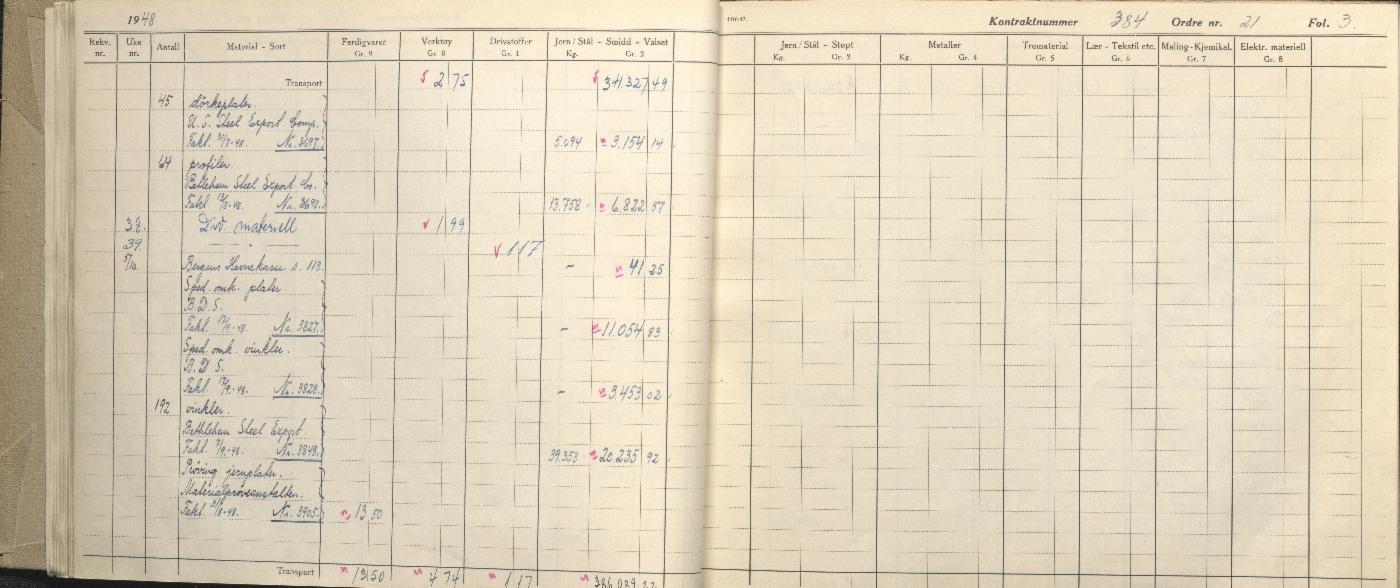 1948
Kontraktnummer 384 Ordre nr. 21 Fol. 3.
Rekv. nr. Uke nr. Antall Material - Sort Ferdigvarer Gr. 9 Verktøy Gr. 0 Drivstoffer Gr. 1 Jern / Stål - Smidd - Valset Kg. Gr. 2 Jern / Stål - Støpt Kg. Gr. 3 Metaller Kg. Gr. 4 Trematerial Gr. 5 Lær - Tekstil etc. Gr. 6 Maling - Kjemikal. Gr. 7 Elektr. materiell Gr. 8
Transport 2 75 341.327 49
45 dörkplater.
U. S. Steel Export Comp.
Fakt. 31/7-48. Nr. 3697. 5.094 3.154 14
44 profiler.
Bethlehem Steel Export Co.
Fakt. 13/8-48. Nr. 3698. 13.758 6.822 57
38. Div. materiell 1 99
39. 117
5/10. Bergens Havnekasse s. 113. - 41 25
Sped. omk. plater
B. D. S.
Fakt. 17/9-48. Nr. 3827. - 11.054 83
Sped. omk. vinkler.
B. D. S.
Fakt. 17/9-48. Nr. 3828. - 3.453 02
192 vinkler.
Bethlehem Steel Export
Fakt. 7/9-48. Nr. 3848. 39.353 20.235 92
Pröving jernplater.
Materialprøveanstalten.
Fakt. 31/8-48. Nr. 3905. 13 50
Transport 13 50 4 74 117 386.089 22